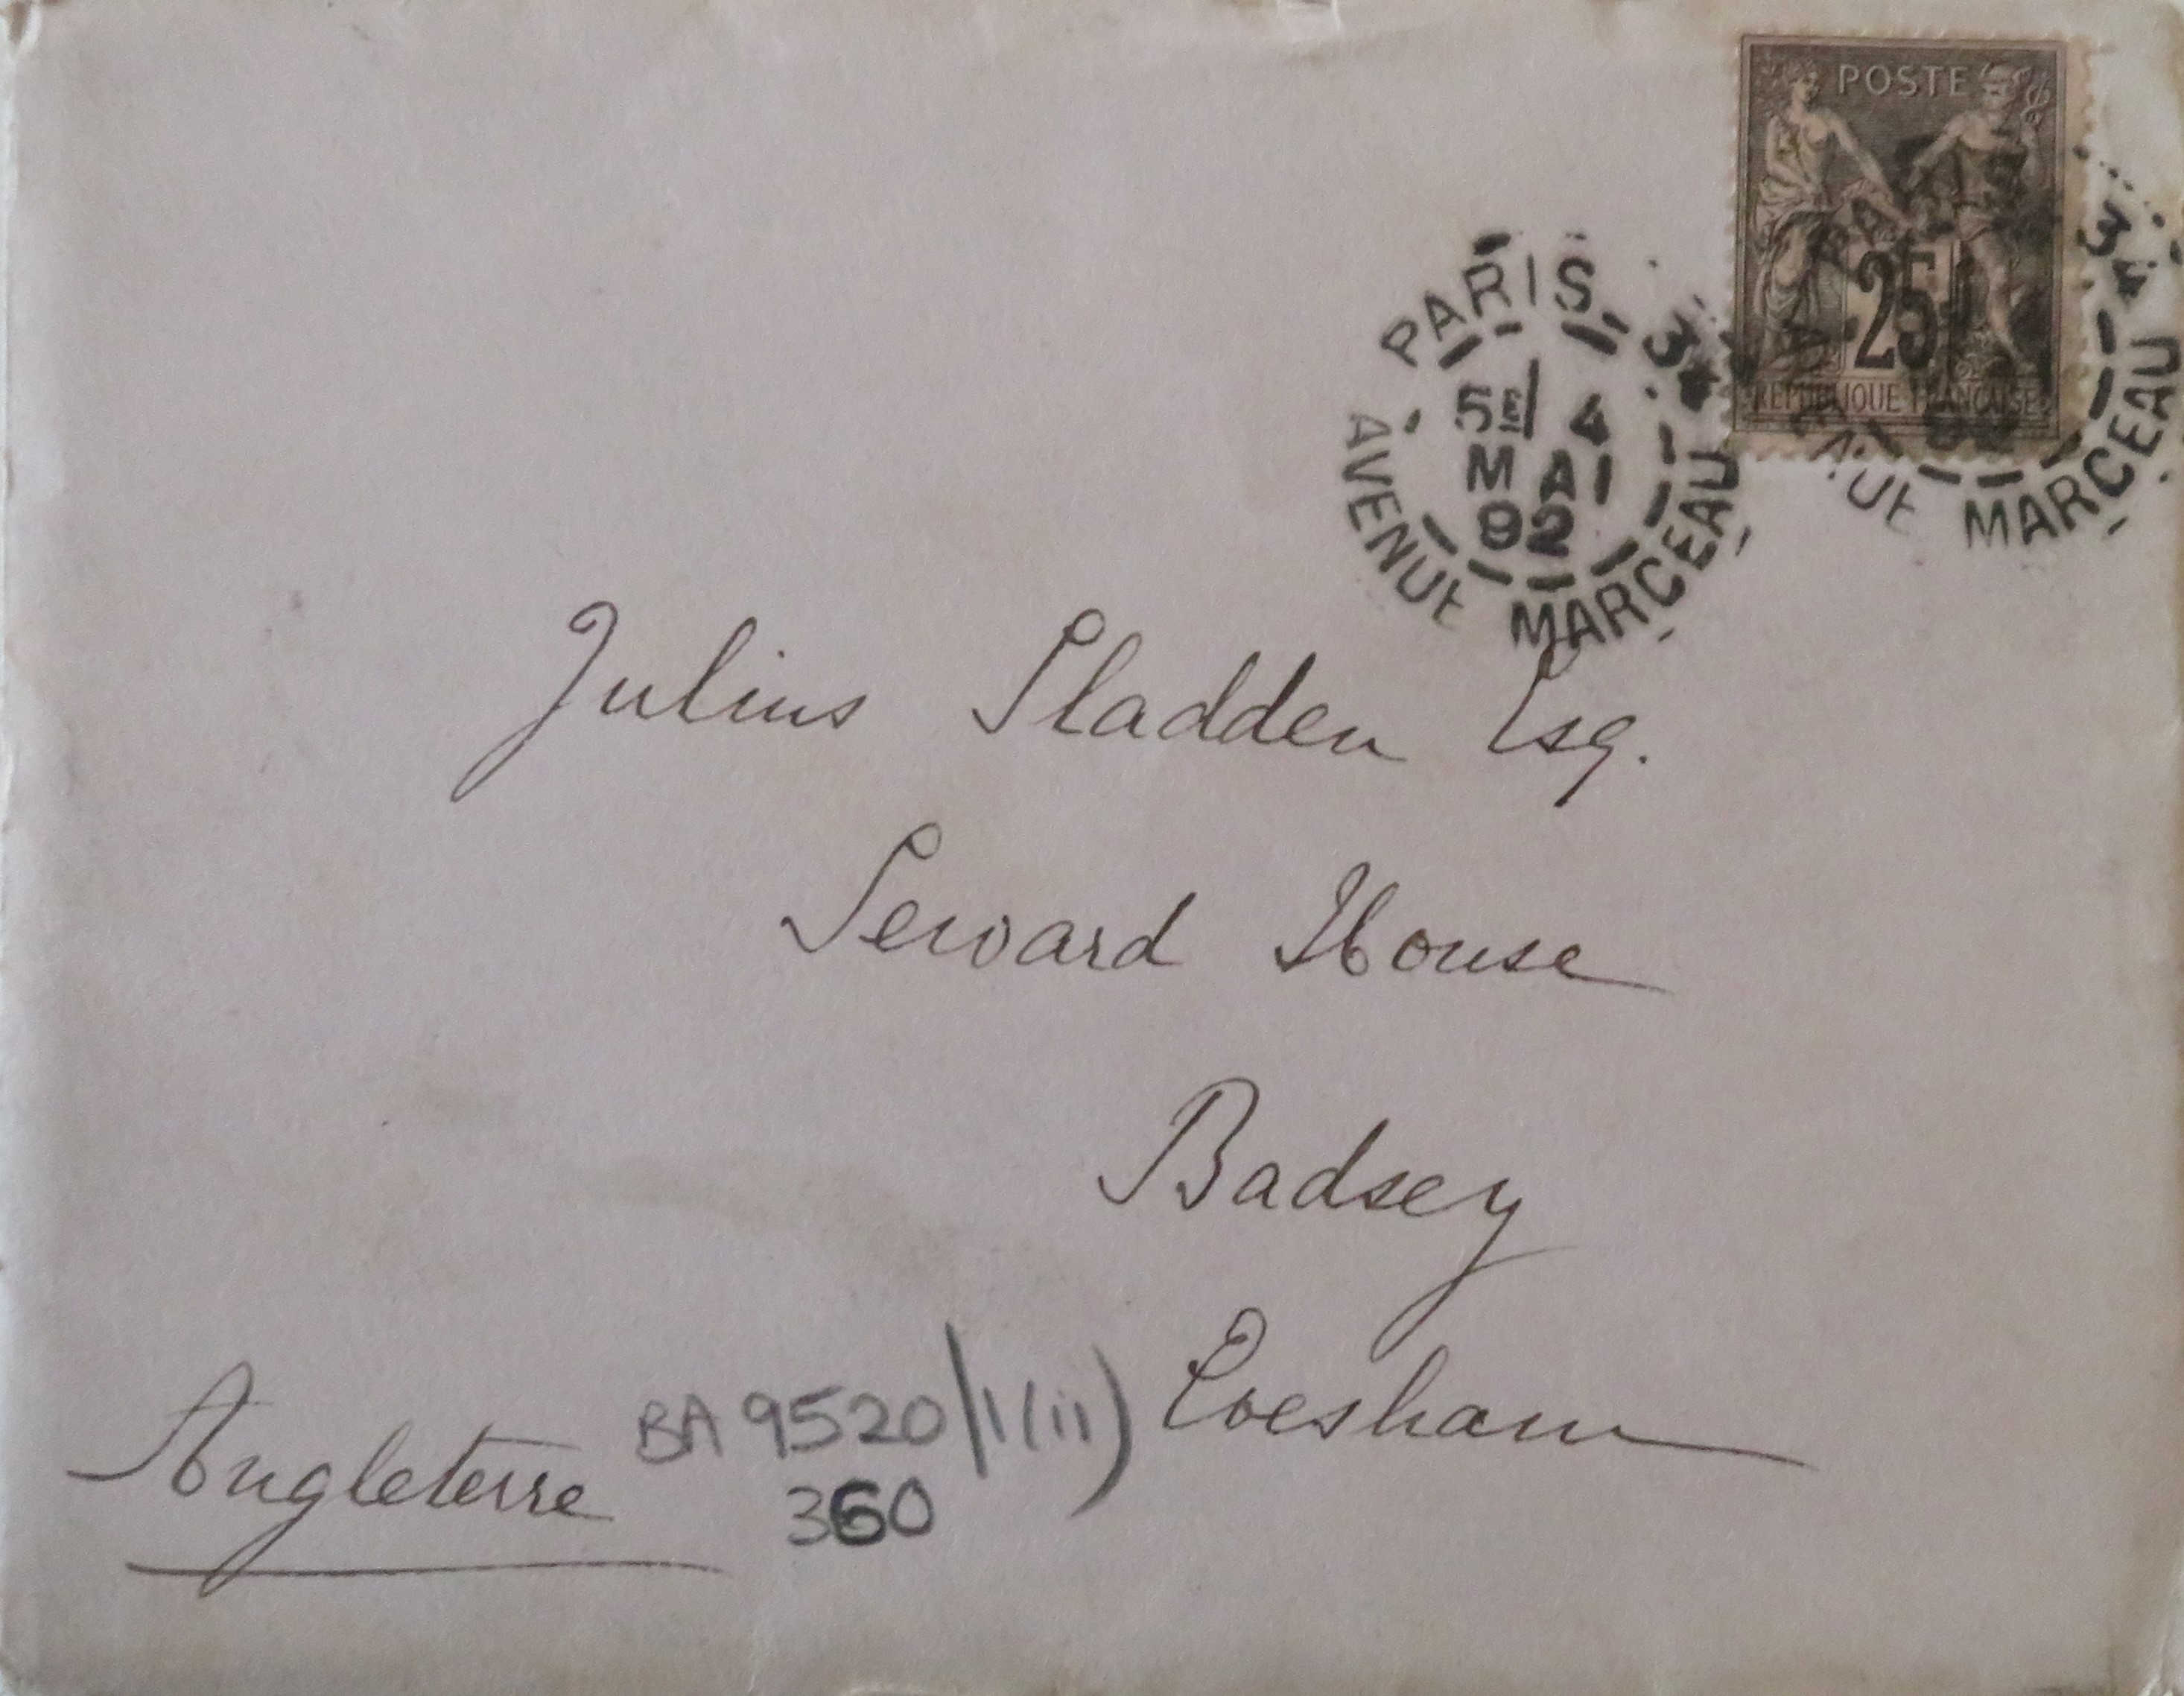 POSTE
25
REPUBLIQUE FRANCAISE
PARIS 34
5E/ 4
MAI
92
AVENUE MARCEAU
PARIS 34
AVENUE MARCEAU
Julius Sladden Esq.
Seward House
Badsey
Evesham
Angleterre
BA 9520/1(ii)
360